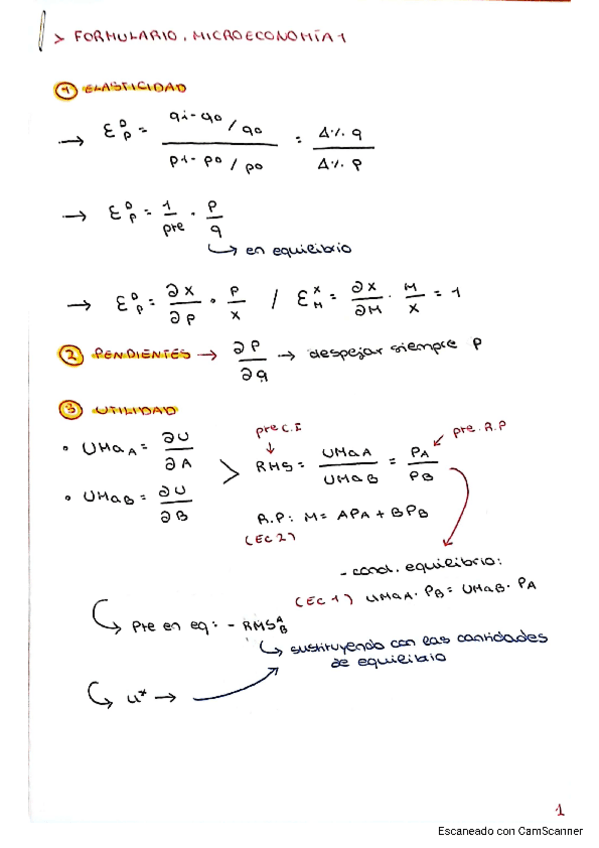 > FORMULARIO. MICROECONOMÍA 1
1 ELASTICIDAD
→ Ɛᴰₚ = (q1 - q0 / q0) / (p1 - p0 / p0) = Δ% q / Δ% P
→ Ɛᴰₚ = 1/pte · P/q
↳ en equilibrio
→ Ɛᴰₚ = ∂X/∂P · P/X / Ɛˣ_M = ∂X/∂M · M/X = 1
2 PENDIENTES → ∂P/∂q → despejar siempre P
3 UTILIDAD
pte C.I
pte. R.P
• UMaA = ∂U/∂A
> RMS = UMaA/UMaB = PA/PB
• UMaB = ∂U/∂B
R.P: M = APA + BPB
(EC 2)
- cond. equilibrio:
(EC 1) UMaA · PB = UMaB · PA
↳ Pte en eq: - RMSᴬ_B
↳ sustituyendo con las cantidades
de equilibrio
↳ U* →
1
Escaneado con CamScanner